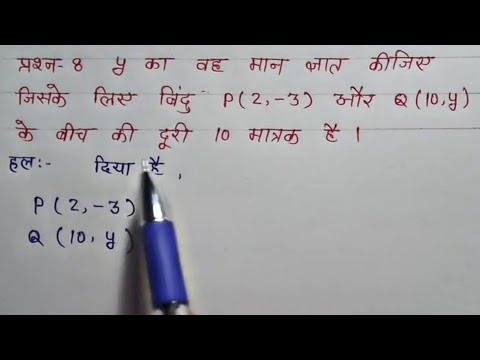 प्रश्न- 8 y का वह मान ज्ञात कीजिए
जिसके लिए बिंदु P(2,-3) और Q(10,y)
के बीच की दूरी 10 मात्रक है।
हल:- दिया है,
P(2,-3)
Q(10,y)